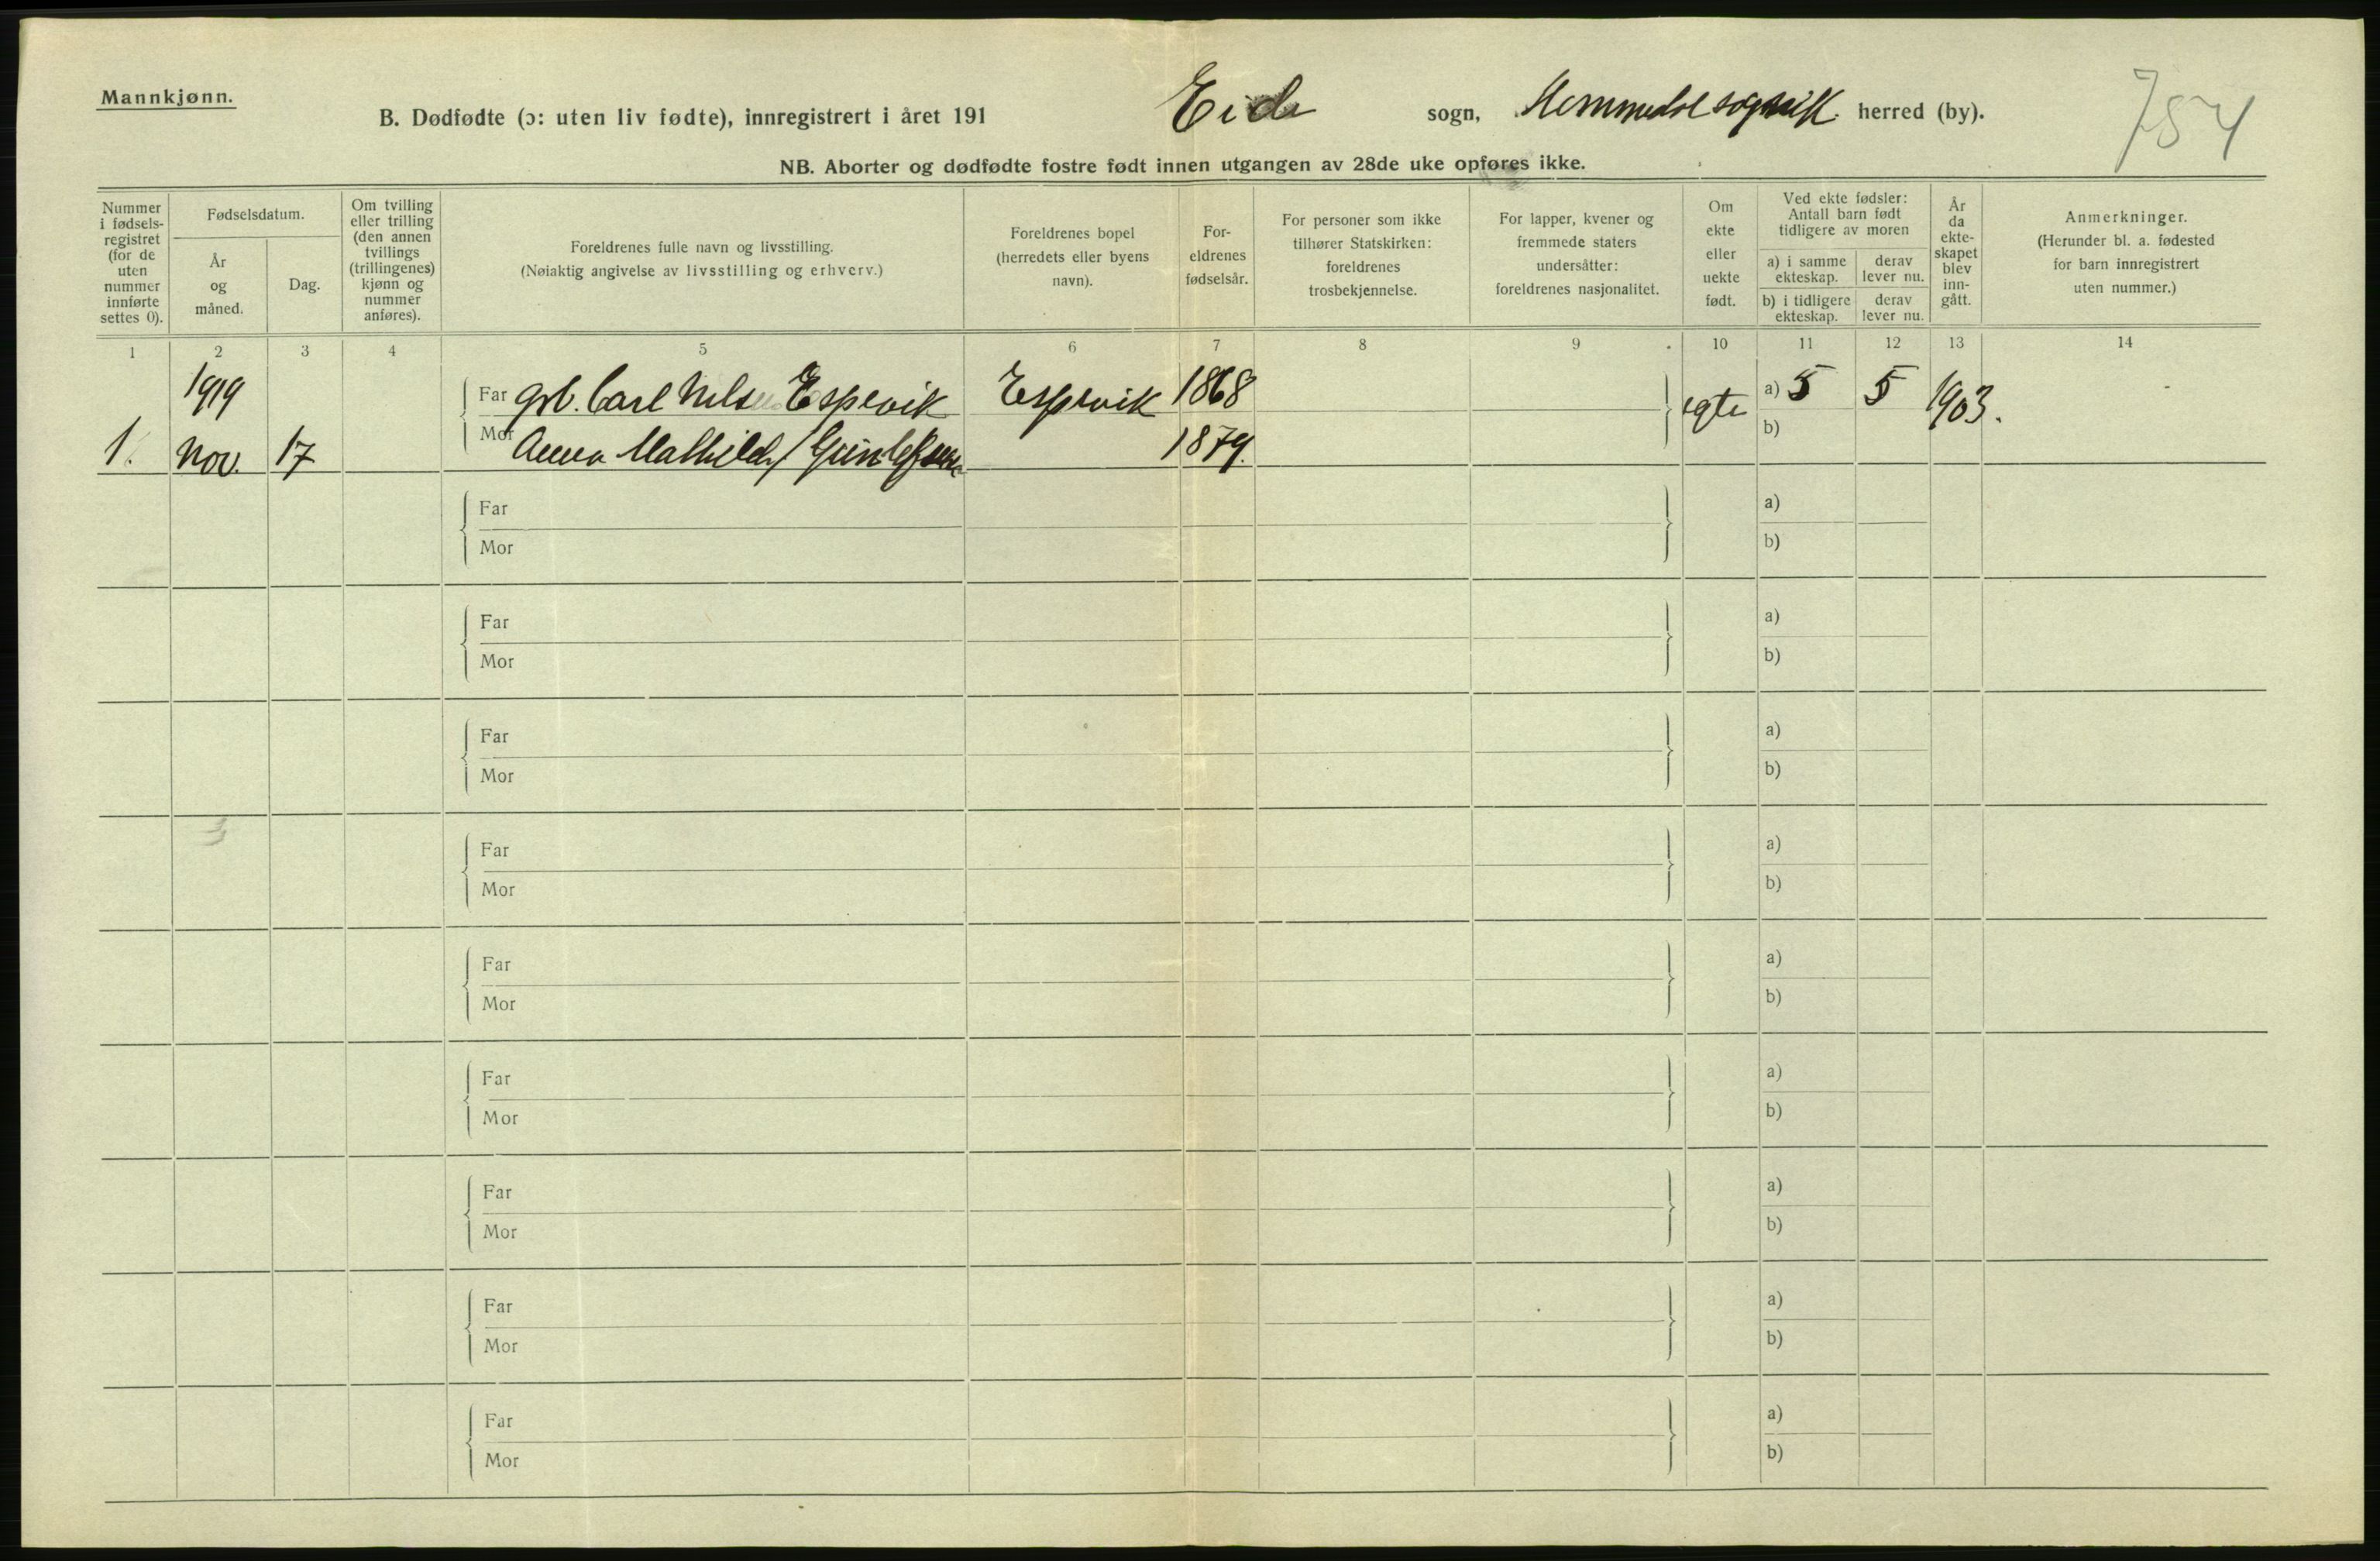 Mannkjønn.
B. Dødfødte (ɔ: uten liv fødte), innregistrert i året 191 Eide sogn, herred (by).
754
NB. Aborter og dødfødte fostre født innen utgangen av 28de uke opføres ikke.
Nummer i fødsels-registret (for de uten nummer innførte settes 0).
Fødselsdatum.
År og måned.
Dag.
Om tvilling eller trilling (den annen tvillings (trillingenes) kjønn og nummer anføres).
Foreldrenes fulle navn og livsstilling.
(Nøiaktig angivelse av livsstilling og erhverv.)
Foreldrenes bopel (herredets eller byens navn).
For-eldrenes fødselsår.
For personer som ikke tilhører Statskirken: foreldrenes trosbekjennelse.
For lapper, kvener og fremmede staters undersåtter: foreldrenes nasjonalitet.
Om ekte eller uekte født.
Ved ekte fødsler: Antall barn født tidligere av moren
a) i samme ekteskap.
derav lever nu.
b) i tidligere ekteskap.
derav lever nu.
År da ekte-skapet blev inn-gått.
Anmerkninger.
(Herunder bl. a. fødested for barn innregistrert uten nummer.)
1 2 3 4 5 6 7 8 9 10 11 12 13 14
1919
Far grb. Carl Nilsen Espevik Espevik 1868 egte a) 5 5 1903.
1. Nov. 17 Mor Anna Mathilde Gunlefsen 1879. b)
Far a)
Mor b)
Far a)
Mor b)
Far a)
Mor b)
Far a)
Mor b)
Far a)
Mor b)
Far a)
Mor b)
Far a)
Mor b)
Far a)
Mor b)
Far a)
Mor b)